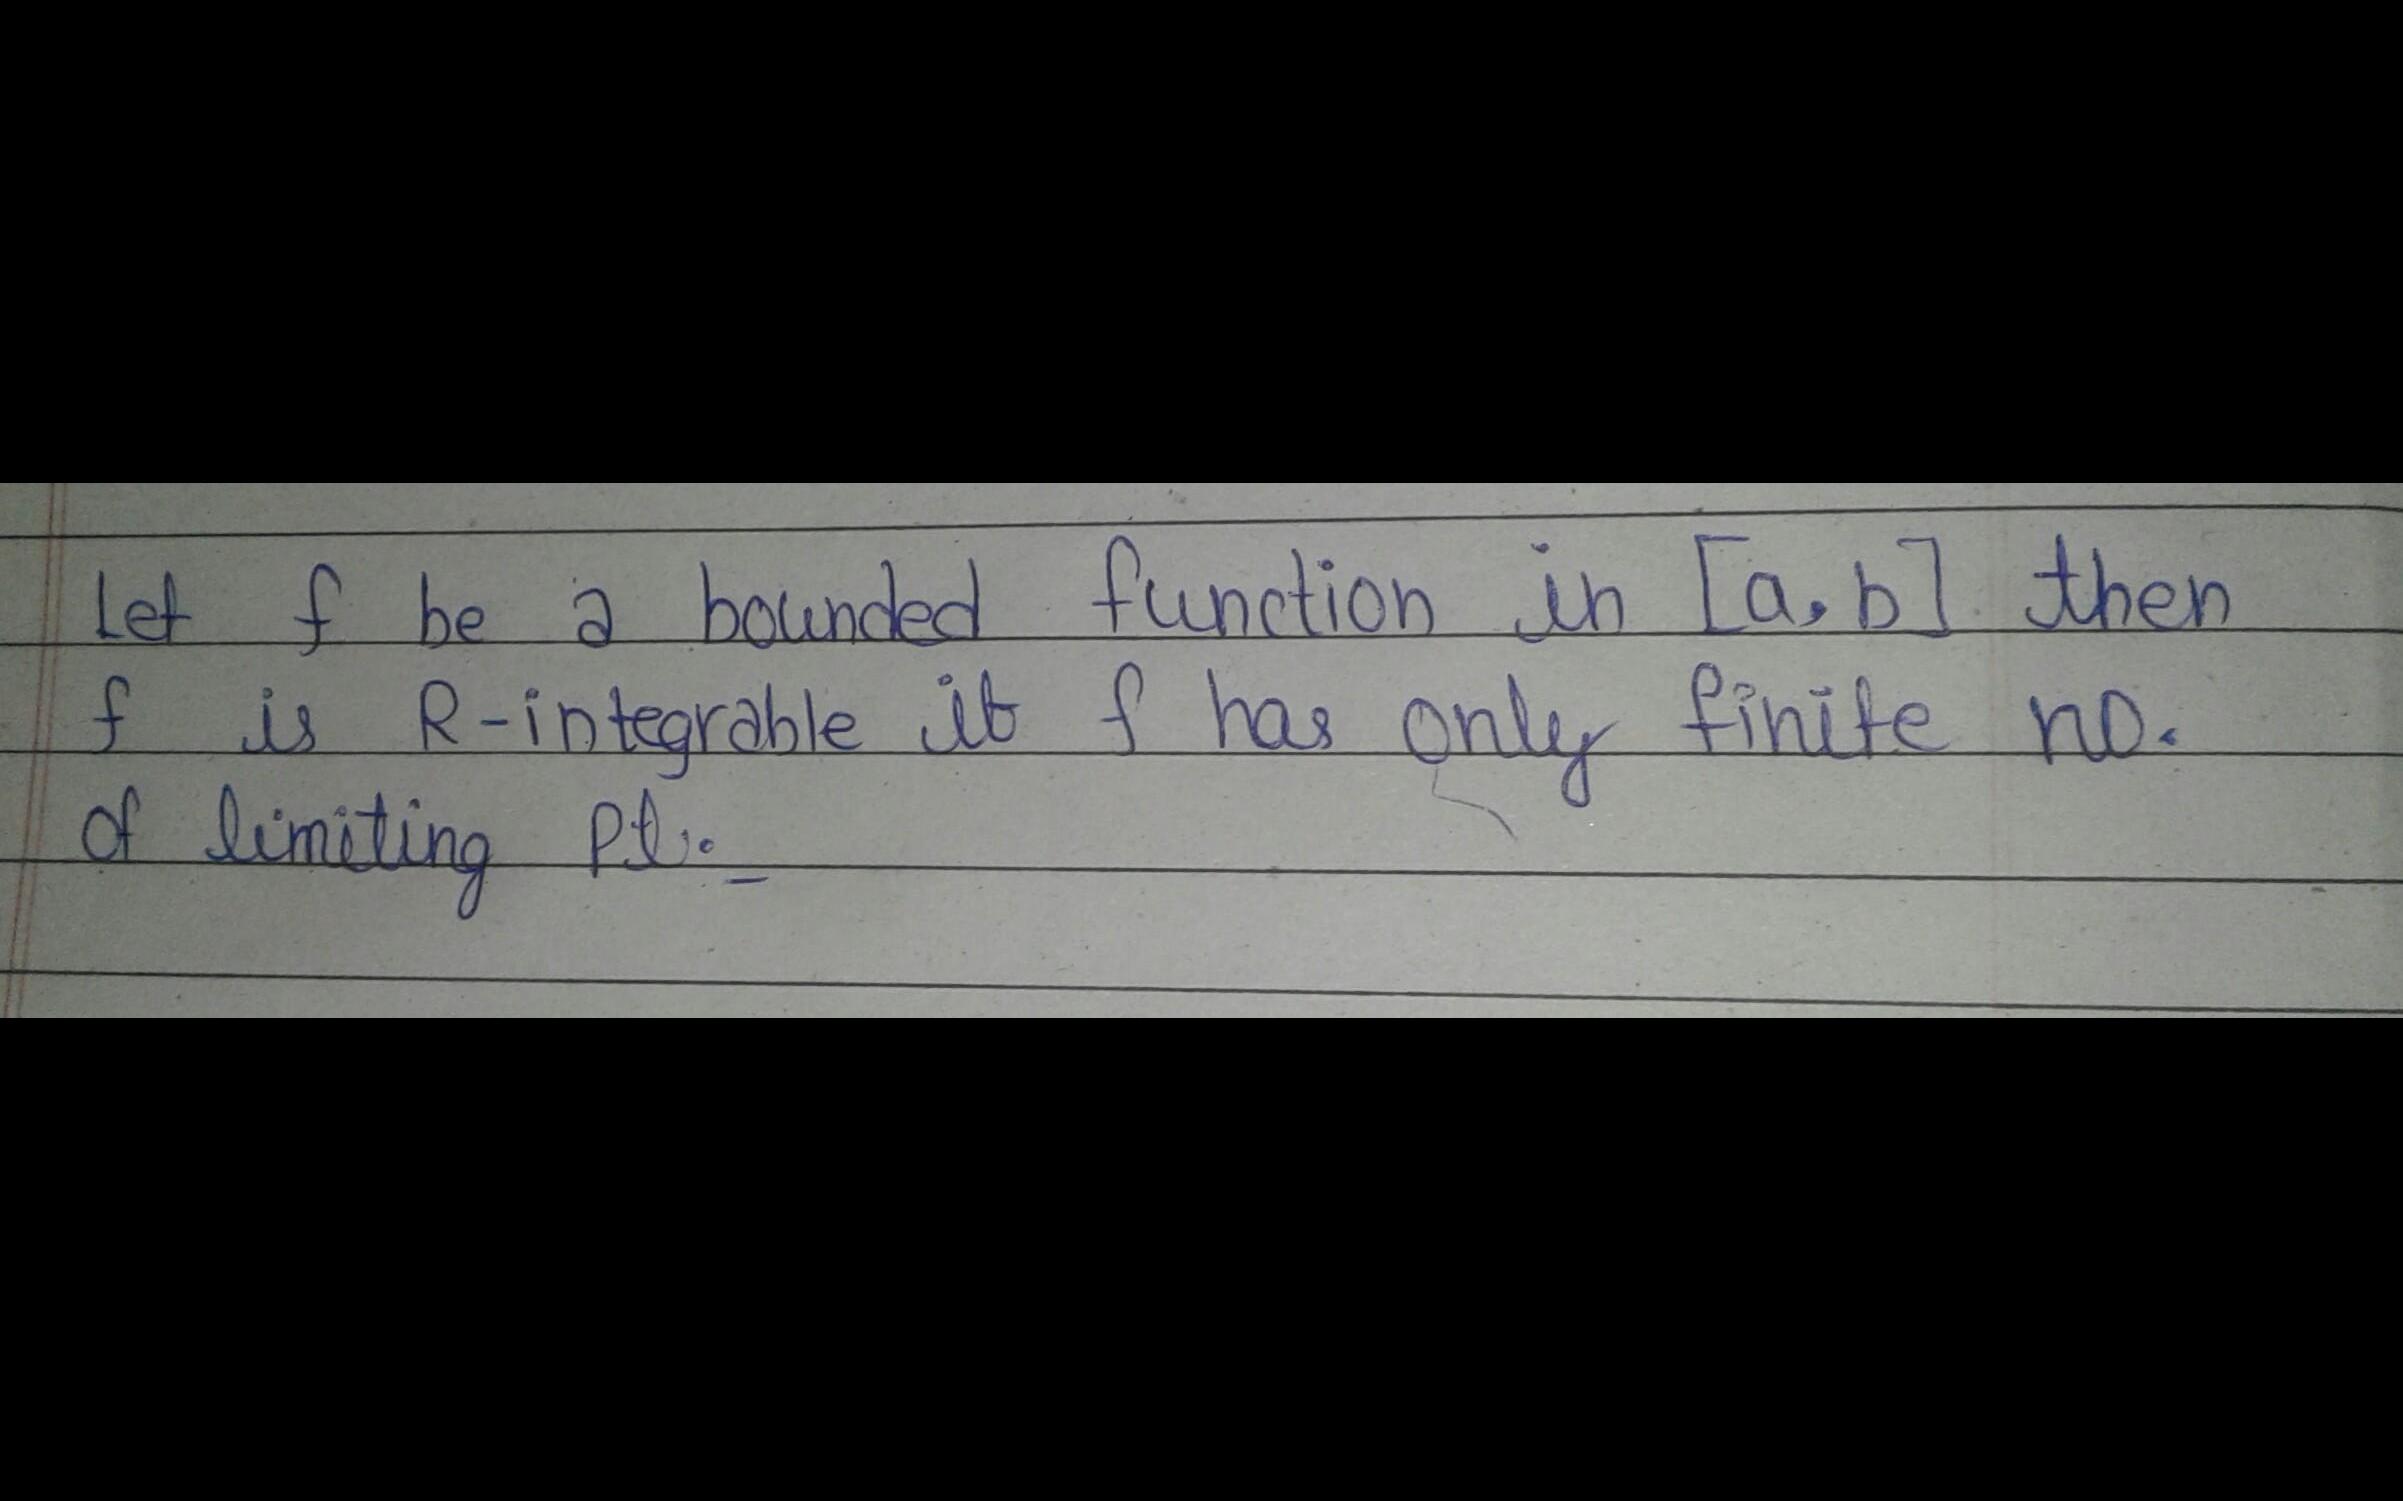 Let f be a bounded function in [a,b] then
f is R-integrable if f has only finite no.
of limiting pt.